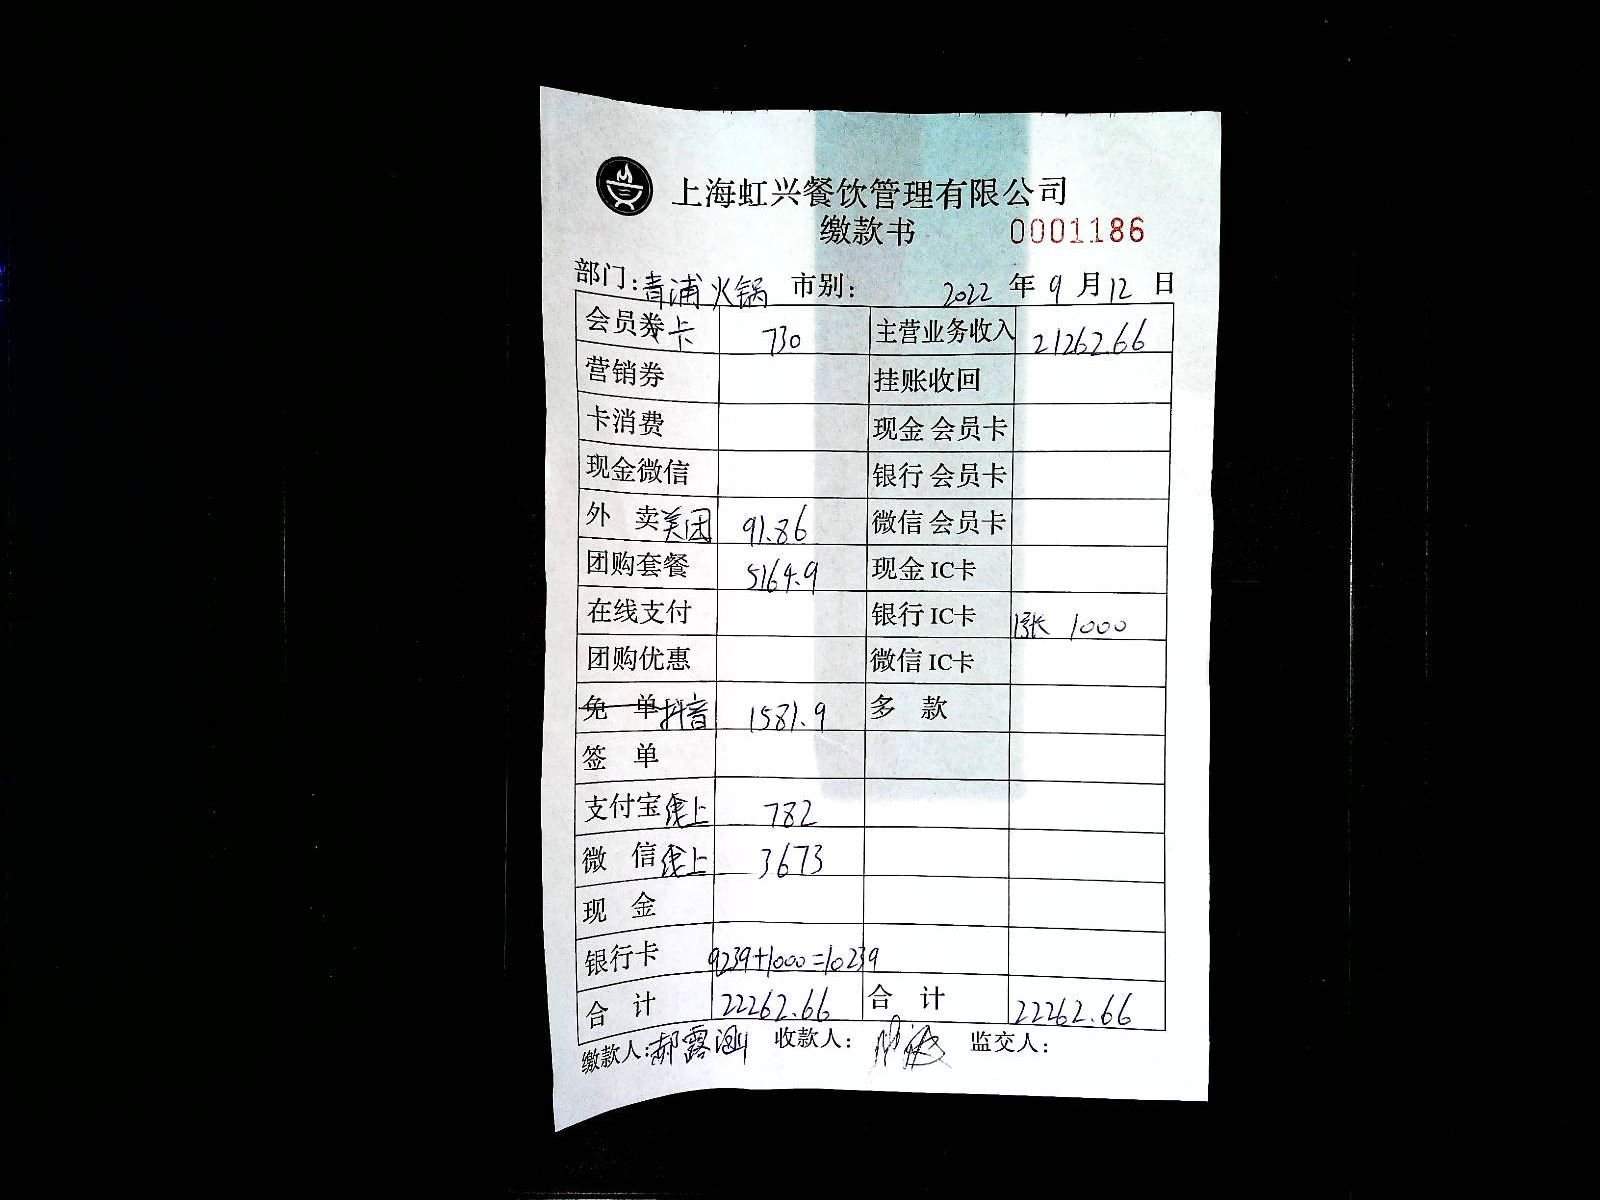 上海虹兴餐饮管理有限公司
缴款书 0001186
部门:青浦火锅 市别: 2022 年 9 月 12 日
会员券卡 730 主营业务收入 21262.66
营销券 挂账收回
卡消费 现金 会员卡
现金微信 银行 会员卡
外 卖美团 91.86 微信 会员卡
团购套餐 5164.9 现金 IC卡
在线支付 银行 IC卡 1张 1000
团购优惠 微信 IC卡
免 单抖音 1581.9 多 款
签 单
支付宝线上 782
微 信线上 3673
现 金
银行卡 9239+1000=10239
合 计 22262.66 合 计 22262.66
缴款人:郝露 收款人: 监交人: